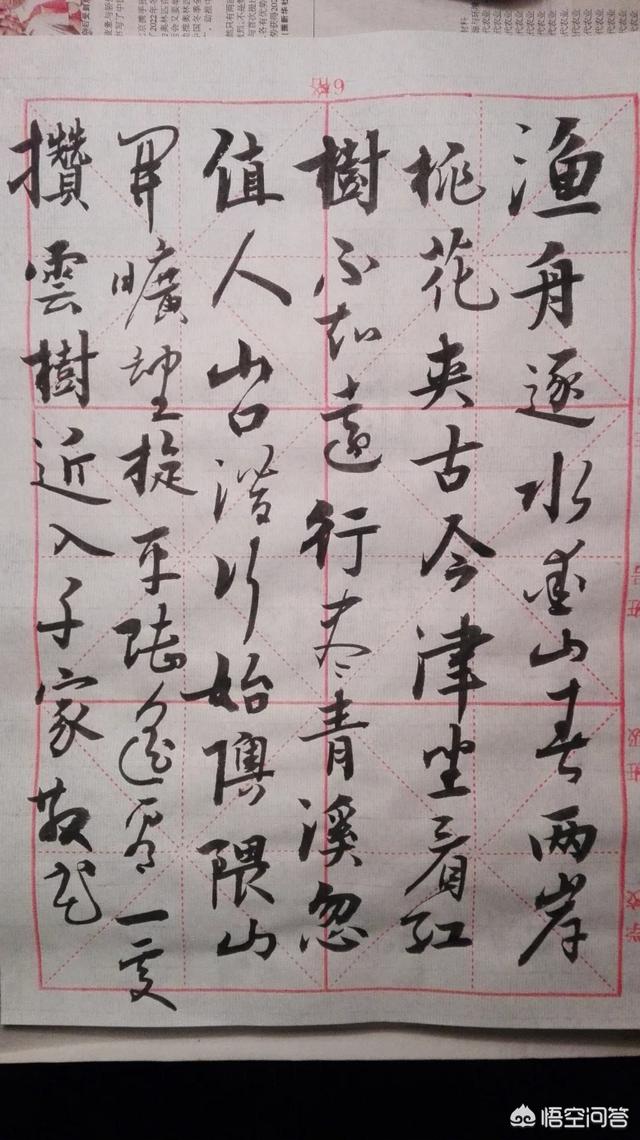 渔舟逐水爱山春两岸
桃花夾古今津坐看红
樹不知遠行尽青溪忽
值人山口潜行始隩隈山
開曠望旋平陸遙看一處
攢雲樹近入千家散花
悟空问答